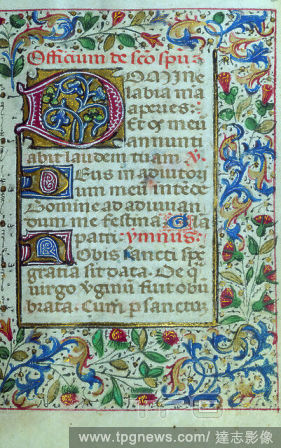 Officium de sco spu
DOMINE
labia m̃a
aperies:
Et os meu
annunti
abit laudem tuam. ℣.
Deus in adiutori
um meu intẽde
Domine ad adiuuan
dum me festina Gl̃a
patri: ymnus.
Nobis sancti sps
gratia sit data. De q̃
uirgo uginũ fuit obũ
brata. Cum p sancto
www.tpgnews.com / 達志影像